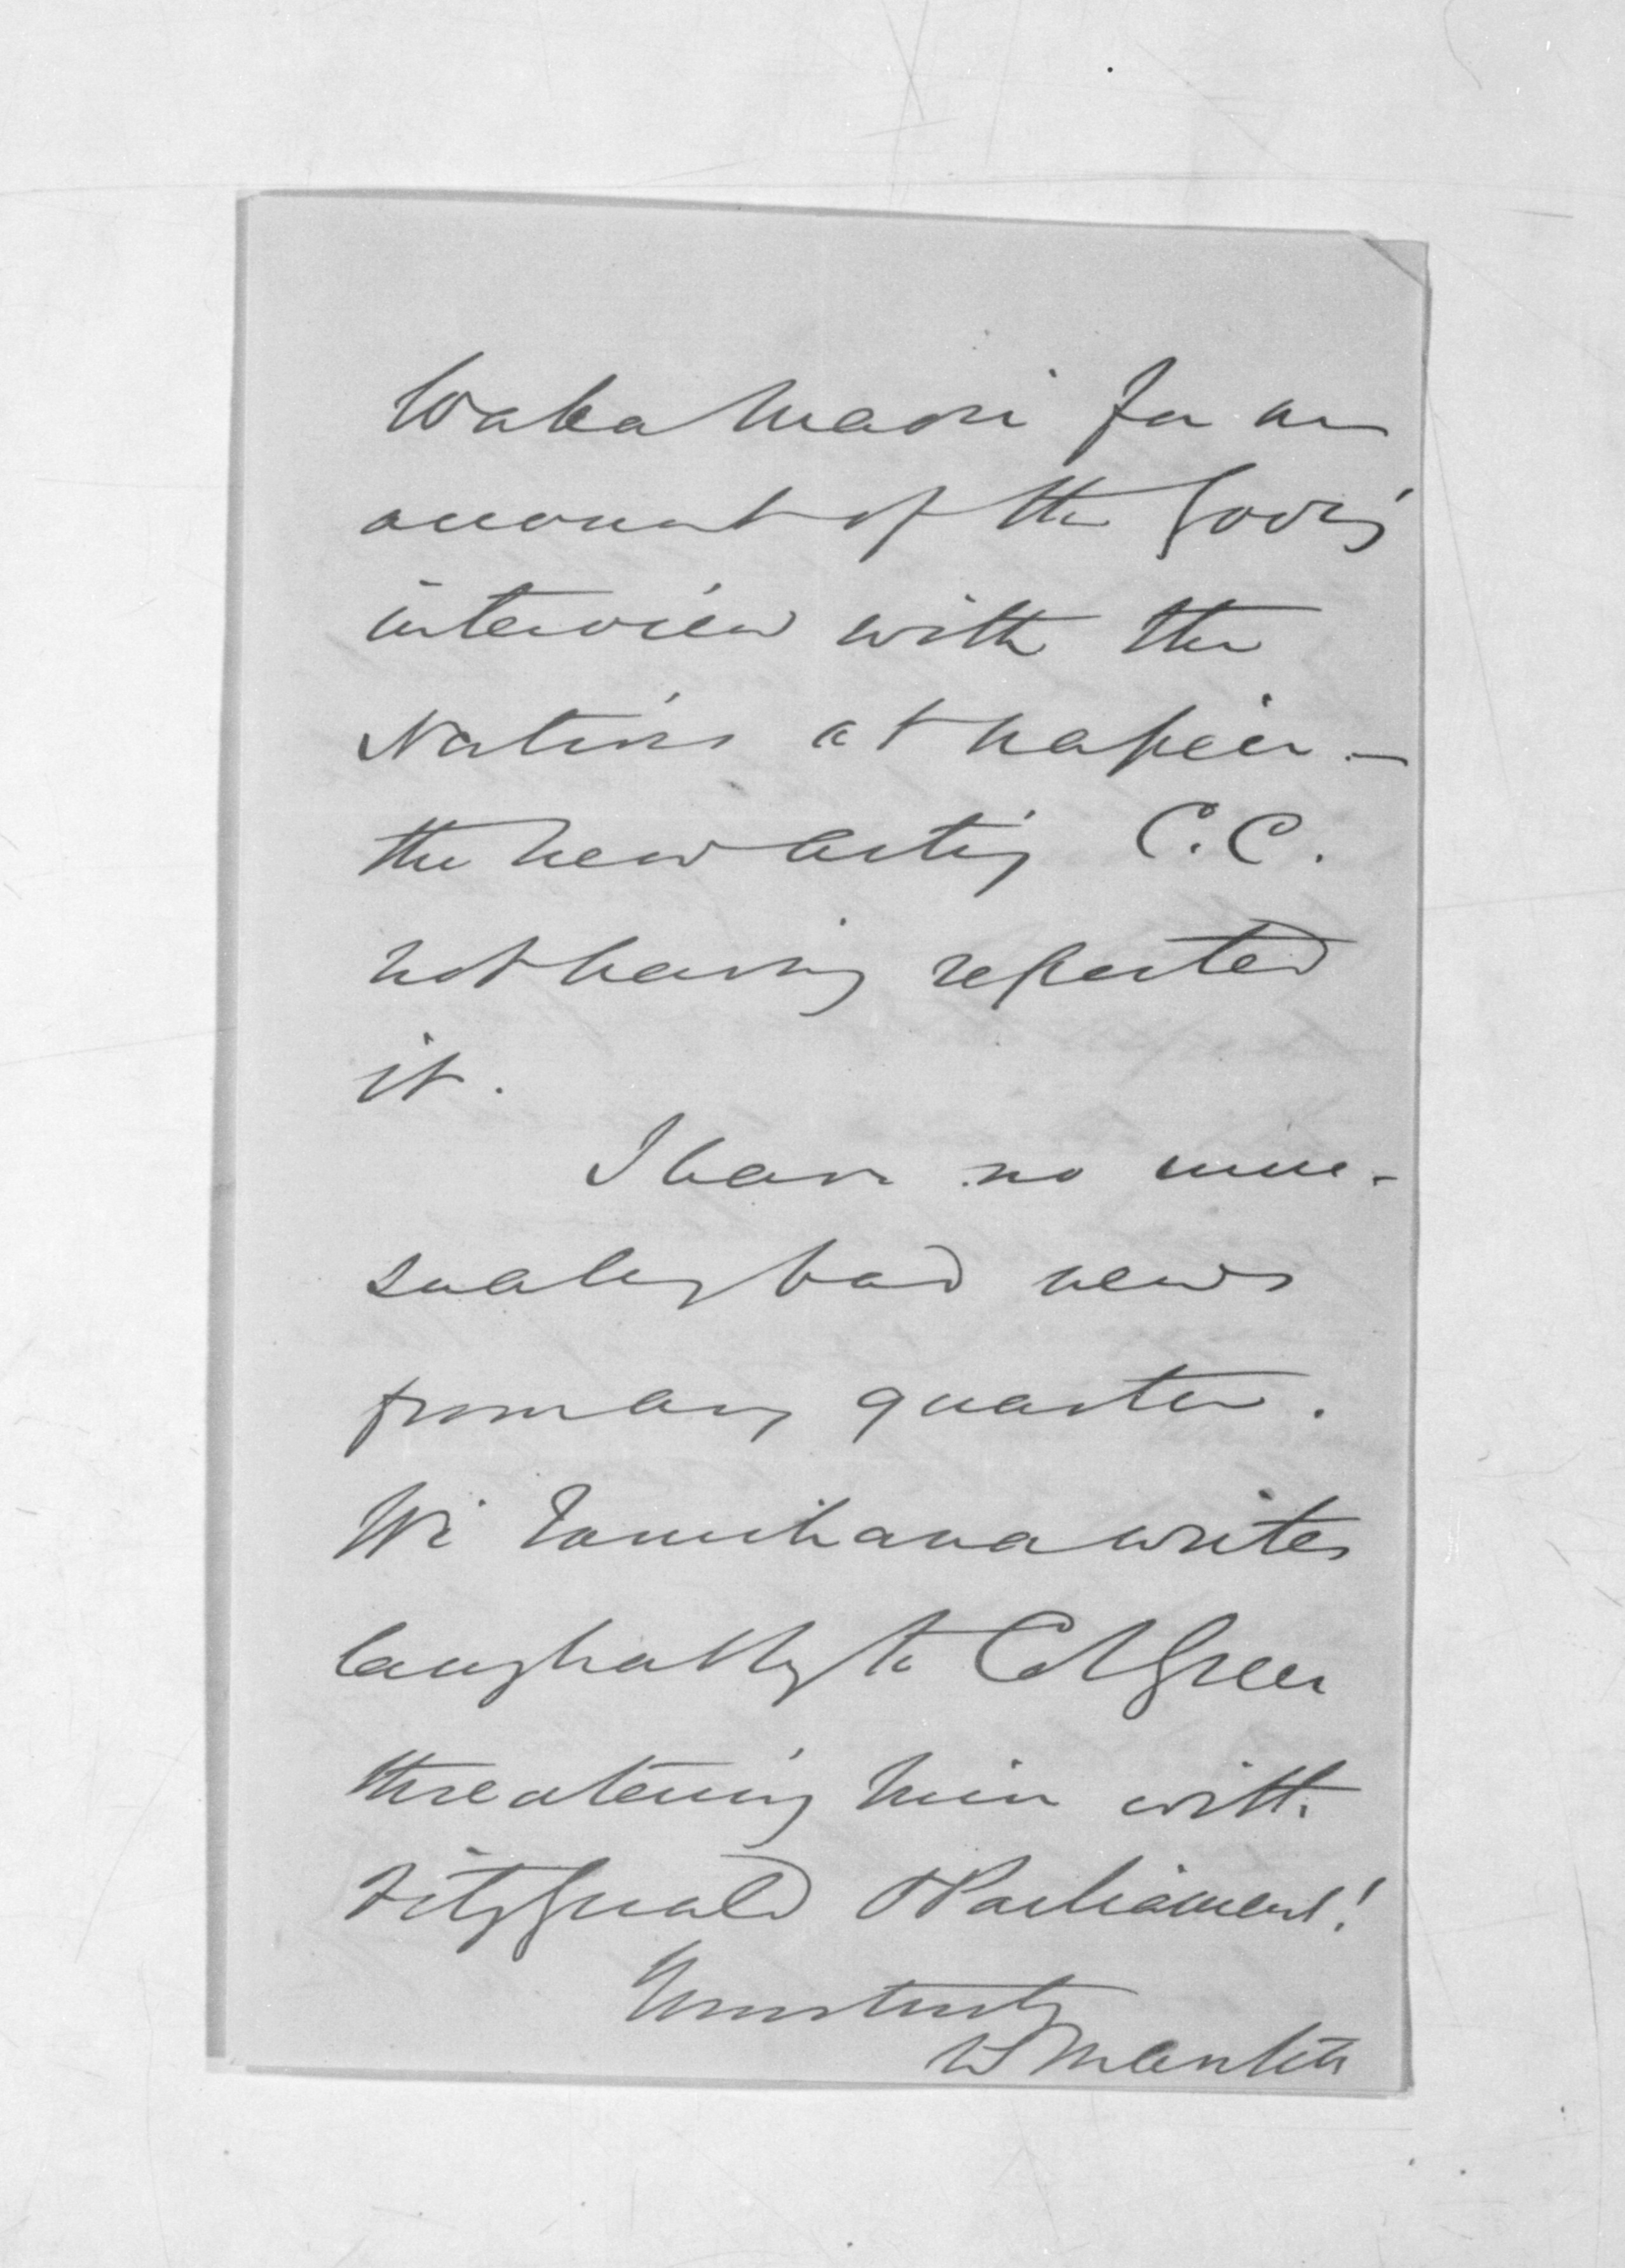 Waka Maori for an
account of the Gov's
interview with the
Natives at Napier —
the new acting C.C.
not having reported
it.
I have no unu-
sually bad news
from any quarter.
Wi Tamihana writes
laughably to Col Greer
threatening him with
FitzGerald & Parliament!
Yours truly
W Mantell